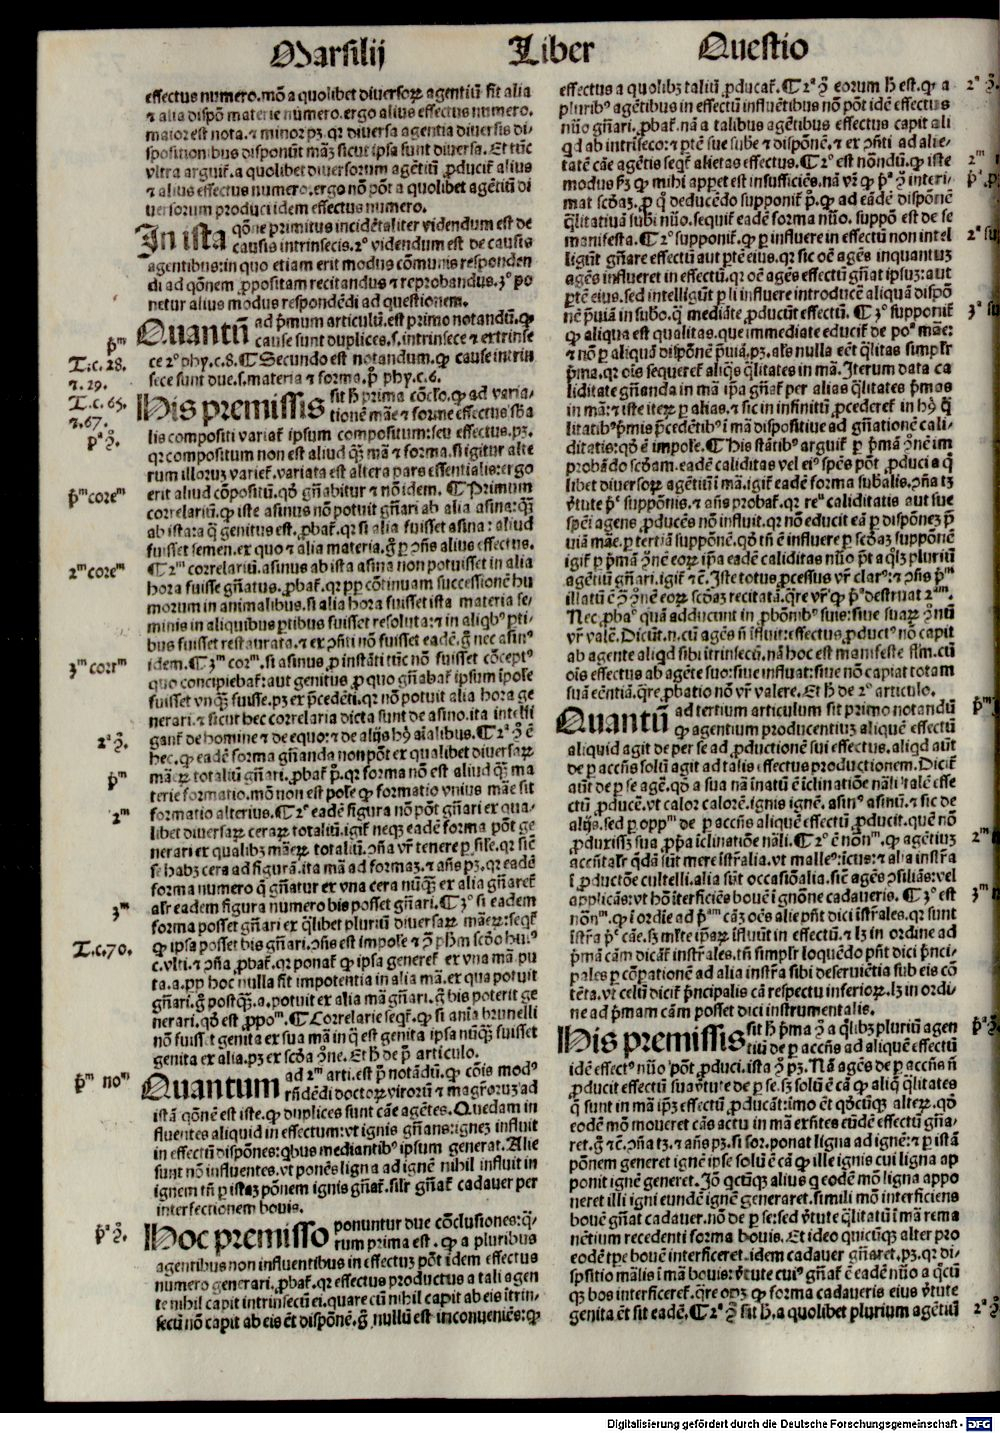 Marsilij Liber Questio
effectus numero. mõ a quolibet diuersoꝝ agentiũ fit alia
⁊ alia dispõ materie numero. ergo alius effectus numero.
maior est nota. ⁊ minor pꝫ. qꝛ diuersa agentia diuersis di-
spositionibus disponũt mãꝫ sicut ipsa sunt diuersa. Et tũc
vltra arguit̃. a quolibet diuersorum agẽtiũ ꝓducit̃ alius
⁊ alius effectus numero. ergo nõ põt a quolibet agẽtiũ di
uersorum produci idem effectus numero.
In ista q̃one primitus incidẽtaliter videndum est de
causis intrinsecis. 2º videndum est de causis
agentibus: in quo etiam erit modus cõmunis responden
di ad qõnem ꝓpositam recitandus ⁊ reprobandus. 3º po
netur alius modus respondẽdi ad questionem.
Quantũ ad p̃mum articulũ. est primo notandũ. ꝙ
cause sunt duplices. s. intrinsece ⁊ extrinse
ce 2º phy. c. 8. ¶ Secundo est notandum. ꝙ cause intrin
sece sunt due. s. materia ⁊ forma. p̃ phy. c. 6.
His premissis sit h̃ prima cõclo. ꝙ ad varia-
tionẽ mãe ⁊ forme effectus sb̃a
lis compositi variat̃ ipsum compositum: seu effectus. pꝫ.
qꝛ compositum non est aliud q̃ꝫ mã ⁊ forma. si igitur alte
rum illoruꝫ variet̃. variata est altera pars essentialis: ergo
erit aliud cõpositũ. qõ gñabitur ⁊ nõ idem. ¶ Primum
correlariũ. ꝙ iste asinus nõ potuit gñari ab alia asina: q̃ꝫ
ab ista: a q̃ genitus est. ꝓbat̃. qꝛ si alia fuisset asina: aliud
fuisset semen. ex quo ⁊ alia materia. g̃ p ɔñs alius effectus.
¶ 2ᵐ correlariũ. asinus ab ista asina non potuisset in alia
hora fuisse gñatus. ꝓbat̃. qꝛ pp cõtinuam successionẽ hu
morum in animalibus. si alia hora fuisset ista materia se-
minis in aliquibus ꝑtibus fuisset resoluta: ⁊ in aliqbꝰ ꝑti-
bus fuisset restaurata. ⁊ ex ɔñti nõ fuisset eadẽ. g̃ nec asinꝰ
idem. ¶ 3ᵐ corᵐ. si asinus ꝓ instãti tũc nõ fuisset cõceptꝰ
quo concipiebat̃: aut genitus ꝓ quo gñabat̃ ipsum ĩpole
fuisset vnq̃ꝫ fuisse. pꝫ ex p̃cedẽti. qꝛ nõ potuit alia hora ge
nerari. ⁊ sicut hec correlaria dicta sunt de asino. ita intelli
gant̃ de homine ⁊ de equo: ⁊ de alijs hꝰ aĩalibus. ¶ 2ª ɔ̃ ẽ
hec. ꝙ eadẽ forma gñanda non põt ex qualibet diuersaꝝ
mãꝝ totaliũ gñari. ꝓbat̃ p̃. qꝛ forma nõ est aliud q̃ꝫ ma
terie formatio. mõ non est pole ꝙ formatio vnius mãe sit
formatio alterius. ¶ 2º eadẽ figura nõ põt gñari ex qua-
libet diuersaꝝ ceraꝝ totaliũ. igit̃ neqꝫ eadẽ forma põt ge
nerari ex qualibꝫ mãꝝ totaliũ. ɔña vr̃ tenere p sile. qꝛ sic̃
se habꝫ cera ad figurã. ita mã ad formaꝫ. ⁊ añs pꝫ. qꝛ eadẽ
forma numero q̃ gñatur ex vna cera nũq̃ꝫ ex alia gñaret̃
alr̃ eadem figura numero bis posset gñari. ¶ 3º si eadem
forma posset gñari ex q̃libet pluriũ diuersaꝝ mãꝝ: seqt̃
ꝙ ipsa posset bis gñari. ɔñs est impole ⁊ ɔ̃ ph̃m scõo huiꝰ
c. vlti. ⁊ ɔña ꝓbat̃. qꝛ ponat̃ ꝙ ipsa generet̃ ex vna mã pu
ta. a. pp hoc nulla fit impotentia in alia mã. ex qua potuit
gñari. g̃ postq̃ꝫ. a. potuit ex alia mã gñari. g̃ bis poterit ge
nerari. qõ est ꝓpoᵐ. ¶ Correlarie seqt̃. ꝙ si anĩa brunelli
nõ fuisset genita ex sua mã in q̃ est genita ipsa nũq̃ꝫ fuisset
genita ex alia. pꝫ ex scõa ɔ̃ne. Et h̃ de p̃ articulo.
Quantum ad 2ᵐ arti. est p̃ notãdũ. ꝙ cõis modꝰ
rñdẽdi doctoꝝ virorũ ⁊ magr̃oruꝫ ad
istã qõnẽ est iste. ꝙ duplices sunt cãe agẽtes. Quedam in
fluentes aliquid in effectum: vt ignis gñans: igneꝫ influit
in effectũ dispões: qbus mediantibꝰ ipsum generat. Alie
sunt nõ influentes. vt ponẽs ligna ad ignẽ nihil influit in
ignem tñ p istaꝫ põnem ignis gñat̃. silr̃ gñat̃ cadauer per
interfectionem bouis.
Hoc premisso ponuntur due cõclusiones: q̃-
rum prima est. ꝙ a pluribus
agentibus non influentibus in effectuꝫ põt idem effectus
numero generari. ꝓbat̃. qꝛ effectus productus a tali agen
te nihil capit intrinsecũ ei. quare cũ nihil capit ab eis ĩtrin-
secũ nõ capit ab eis ẽt dispõnẽ. g̃ nullũ est inconueniẽs: ꝙ
pᵐ
T. c. 28.
⁊. 29.
T. c. 65.
⁊. 67.
pª ɔ̃.
p̃ᵐ coreᵐ
2ᵐ coreᵐ
3ᵐ corrᵐ
2ª ɔ̃.
pᵐ
2ᵐ
3ᵐ
T. c. 70.
p̃ᵐ noᵐ
pª ɔ̃.
effectus a quolibꝫ taliũ ꝓducat̃. ¶ 2ª ɔ̃ eorum h̃ est. ꝙ a
pluribꝰ agẽtibus in effectũ influẽtibus nõ põt idẽ effectus
nũo gñari. ꝓbat̃. nã a talibus agẽtibus effectus capit ali
qd ab intrinseco: ⁊ ꝑtẽ sue sube ⁊ dispõnẽ. ⁊ ex ɔñti ad alie-
tatẽ cãe agẽtis seqt̃ alietas effectus. ¶ 2º est nõndũ. ꝙ iste
modus fꝫ ꝙ mihi appet est insufficiẽs. nã vr̃ ꝙ pª ɔ̃ interi-
mat scõaꝫ. ꝓ q̃ deducẽdo supponit̃ p̃. ꝙ ad eãdẽ dispõnẽ
q̃litatiuã subi nũo. sequit̃ eadẽ forma nũo. suppõ est de se
manifesta. ¶ 2º supponit̃. ꝙ p influere in effectũ non intel
ligũt gñare effectũ aut ꝑtẽ eius. qꝛ sic oẽ agẽs inquantuꝫ
agẽs influeret in effectũ. qꝛ oẽ agẽs effectũ gñat ipsuꝫ: aut
ꝑtẽ eius. sed intelligũt p li influere introducẽ aliquã dispõ
nẽ p̃uiã in subo. q̃ mediãte ꝓducũt effectũ. ¶ 3º supponit̃
ꝙ aliqua est qualitas. que immediate educit̃ de poª mãe:
⁊ nõ p aliquã dispõnẽ p̃uiã. pꝫ. als nulla eẽt q̃litas simplr̃
p̃ma. qꝛ oĩs sequeret̃ aliq̃s q̃litates in mã. Iterum data ca
liditate gñanda in mã ip̃a gñat̃ per alias q̃litates p̃mas
in mã: ⁊ iste iteꝝ p alias. ⁊ sic in infinitũ ꝓcederet̃ in hꝰ q̃
litatibꝰ p̃mis p̃cedẽtibꝰ ĩ mã dispositiue ad gñationẽ cali-
ditatis: qõ ẽ impole. ¶ His stãtibꝰ arguit̃ p p̃mã ɔ̃nẽ im
probãdo scõam. eadẽ caliditas vel eiꝰ spẽs põt ꝓduci a q̃
libet diuersoꝝ agẽtiũ ĩ mã. igit̃ eadẽ forma sub̃alis. ɔña tꝫ
v̓tute pª suppõnis. ⁊ añs probat̃. qꝛ reᵘ caliditatis aut sue
spẽi agens ꝓducẽs nõ influit. qꝛ nõ educit eã p dispõneꝫ p̃
uiã mãe. p tertiã suppõnẽ. qõ tñ ẽ influere p scõaꝫ suppõnẽ
igit̃ p p̃mã ɔ̃nẽ eoꝝ ip̃a eadẽ caliditas nũo p̃t a q̃lꝫ pluriũ
agẽtiũ gñari. igit̃ ⁊ẽ. Iste totus ꝓcessus vr̃ clarꝰ: ⁊ ɔñs p̃ᵐ
illatũ ẽ ɔ̃ ɔ̃nẽ eoꝝ scõaꝫ recitatã. q̃re vr̃ ꝙ pª destruat 2ᵃᵐ.
Nec ꝓbaº quã adducunt in ꝓbõnibꝰ suis: siue suaꝝ ɔ̃nũ
vr̃ valẽ. Dicũt. n. cũ agẽs ñ ĩfluit: effectus ꝓductꝰ nõ capit
ab agente aliqd sibi ĩtrinsecũ. nã hoc est manifeste flm. cũ
oĩs effectus ab agẽte suo: siue influat: siue nõ capiat totam
suã eẽntiã. q̃re ꝓbatio nõ vr̃ valere. Et h̃ de 2º articulo.
Quantũ ad tertium articulum sit primo notandũ
ꝙ agentium producentiuꝫ aliquẽ effectũ
aliquid agit de per se ad ꝓductionẽ sui effectus. aliqd aũt
de p accñs solũ agit ad talis effectus productionem. Dicit̃
aũt de p se agẽ. qõ a sua nã ĩnatũ ẽ ĩclinatiõe nãli ⁊ talẽ effe
ctũ ꝓducẽ. vt calor calorẽ. ignis ignẽ. asinꝰ asinũ. ⁊ sic de
alijs. sed p oppᵐ de p accñs aliquẽ effectũ ꝓducit. quẽ nõ
ꝓduxissꝫ sua ꝓp̃a ĩclinatiõe nãli. ¶ 2º ẽ nõnᵐ. ꝙ agẽtiuꝫ
accñtalr̃ q̃dã sũt mere ĩstr̃alia. vt malleꝰ: ictus: ⁊ alia instr̃a
ĩ ꝓductõe cultelli. alia sũt occasiõalia. sic̃ agẽs ɔsiliãs: vel
applicãs: vt hõ ĩterficiẽs bouẽ ĩ gñõne cadaueris. ¶ 3º est
nõnᵐ. ꝙ ĩ ordĩe ad p̃ᵃᵐ cãꝫ oẽs alie pñt dici ĩstr̃ales. qꝛ sunt
ĩstr̃a pᵉ cãe. sꝫ mlte ip̃aꝝ ĩfluũt in effectũ. ⁊ lꝫ in ordine ad
p̃mã cãm dicãt̃ instr̃ales. tñ simplr̃ loquẽdo pñt dici p̃nci-
pales p cõpationẽ ad alia instr̃a sibi deseruiẽtia sub eis cõ
tẽta. vt celũ dicit̃ p̃ncipalis cã respectu inferioꝝ. lꝫ in ordi-
ne ad p̃mam cãm posset dici instrumentalis.
His premissis sit h̃ p̃ma ɔ̃ a q̃libꝫ pluriũ agen
tiũ de p accñs ad aliquẽ effectũ
idẽ effectꝰ nũo põt ꝓduci. ista ɔ̃ pꝫ. Nã agẽs de p accñs ñ
ꝓducit effectũ sua v̓tute de p se. sꝫ solũ ẽ cã ꝙ aliq̃ q̃litates
q̃ sunt in mã ip̃ꝫ effectũ ꝓducãt: imo ẽt qõcũqꝫ alteꝝ. qõ
eodẽ mõ moueret cãs actu in mã exñtes eũdẽ effectũ gña-
ret. g̃ ⁊ẽ. ɔña tꝫ. ⁊ añs pꝫ. si sor. ponat ligna ad ignẽ: ⁊ p istã
põnem generet ignẽ ipse solũ ẽ cã ꝙ ille ignis cui ligna ap
ponit ignẽ generet. Iõ qcũqꝫ alius q eodẽ mõ ligna appo
neret illi igni eundẽ ignẽ generaret. simili mõ interficiens
bouẽ gñat cadauer. nõ de p se: sed v̓tute q̃litatũ ĩ mã rema
nẽtium recedenti forma bouis. Et ideo quicũqꝫ alter pro
eodẽ tpe bouẽ interficeret. idem cadauer gñaret. pꝫ. qꝛ di-
spsitio mãlis ĩ mã bouis: v̓tute cuiꝰ gñat̃ ẽ eadẽ nũo a qcũ
qꝫ bos interficeret̃. q̃re opꝫ ꝙ forma cadaueris eius v̓tute
genita ẽt sit eadẽ. ¶ 2ª ɔ̃ sit h̃. a quolibet plurium agẽtiũ
2ª ɔ̃.
2ᵐ
2ª
3ª
pᵐ
2ᵐ
3ᵐ
pª ɔ̃
2ª ɔ̃
Digitalisierung gefördert durch die Deutsche Forschungsgemeinschaft - DFG